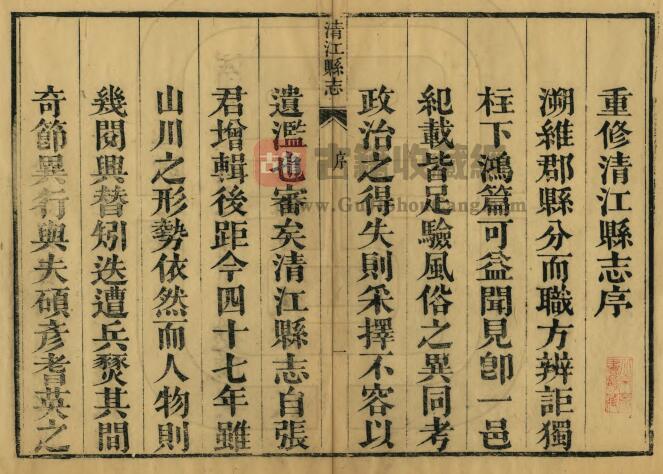 重修清江縣志序
溯維郡縣分而職方辨詎獨
柱下鴻篇可益聞見卽一邑
紀載皆足驗風俗之異同考
政治之得失則采擇不容以
清江縣志
序
一
遺濫也審矣清江縣志自張
君增輯後距今四十七年雖
山川之形勢依然而人物則
幾閱興替矧迭遭兵燹其間
奇節異行與夫碩彥耆英之
古籍收藏網
www.GuJiShouCang.com